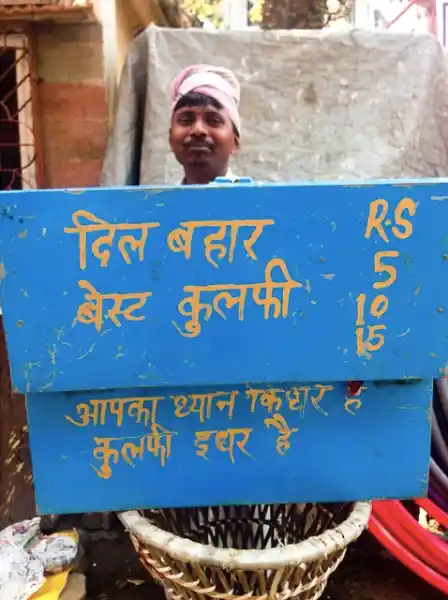 दिल बहार
बेस्ट कुलफी
R.S
5
10
15
आपका ध्यान किधर है
कुलफी इधर है